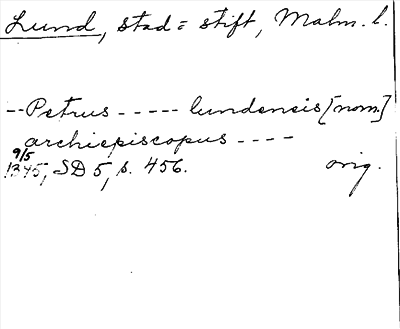 Lund, stad = stift, Malm. l.
-- Petrus ----- lundensis [nom.]
archiepiscopus ----
9/5
1345, SD 5, s. 456. orig.